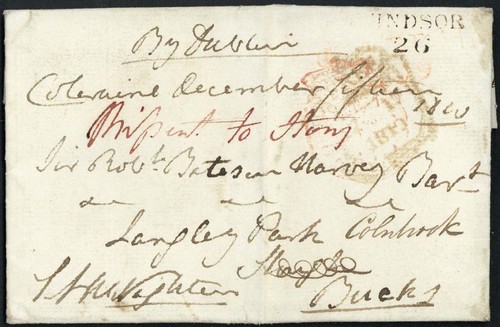 By Dublin
INDSOR
26
Coleraine december fifteen 1810
Missent to Stony
Sir Robt. Bateson Harvey Bart
Langley Park Colnbrook
Bucks